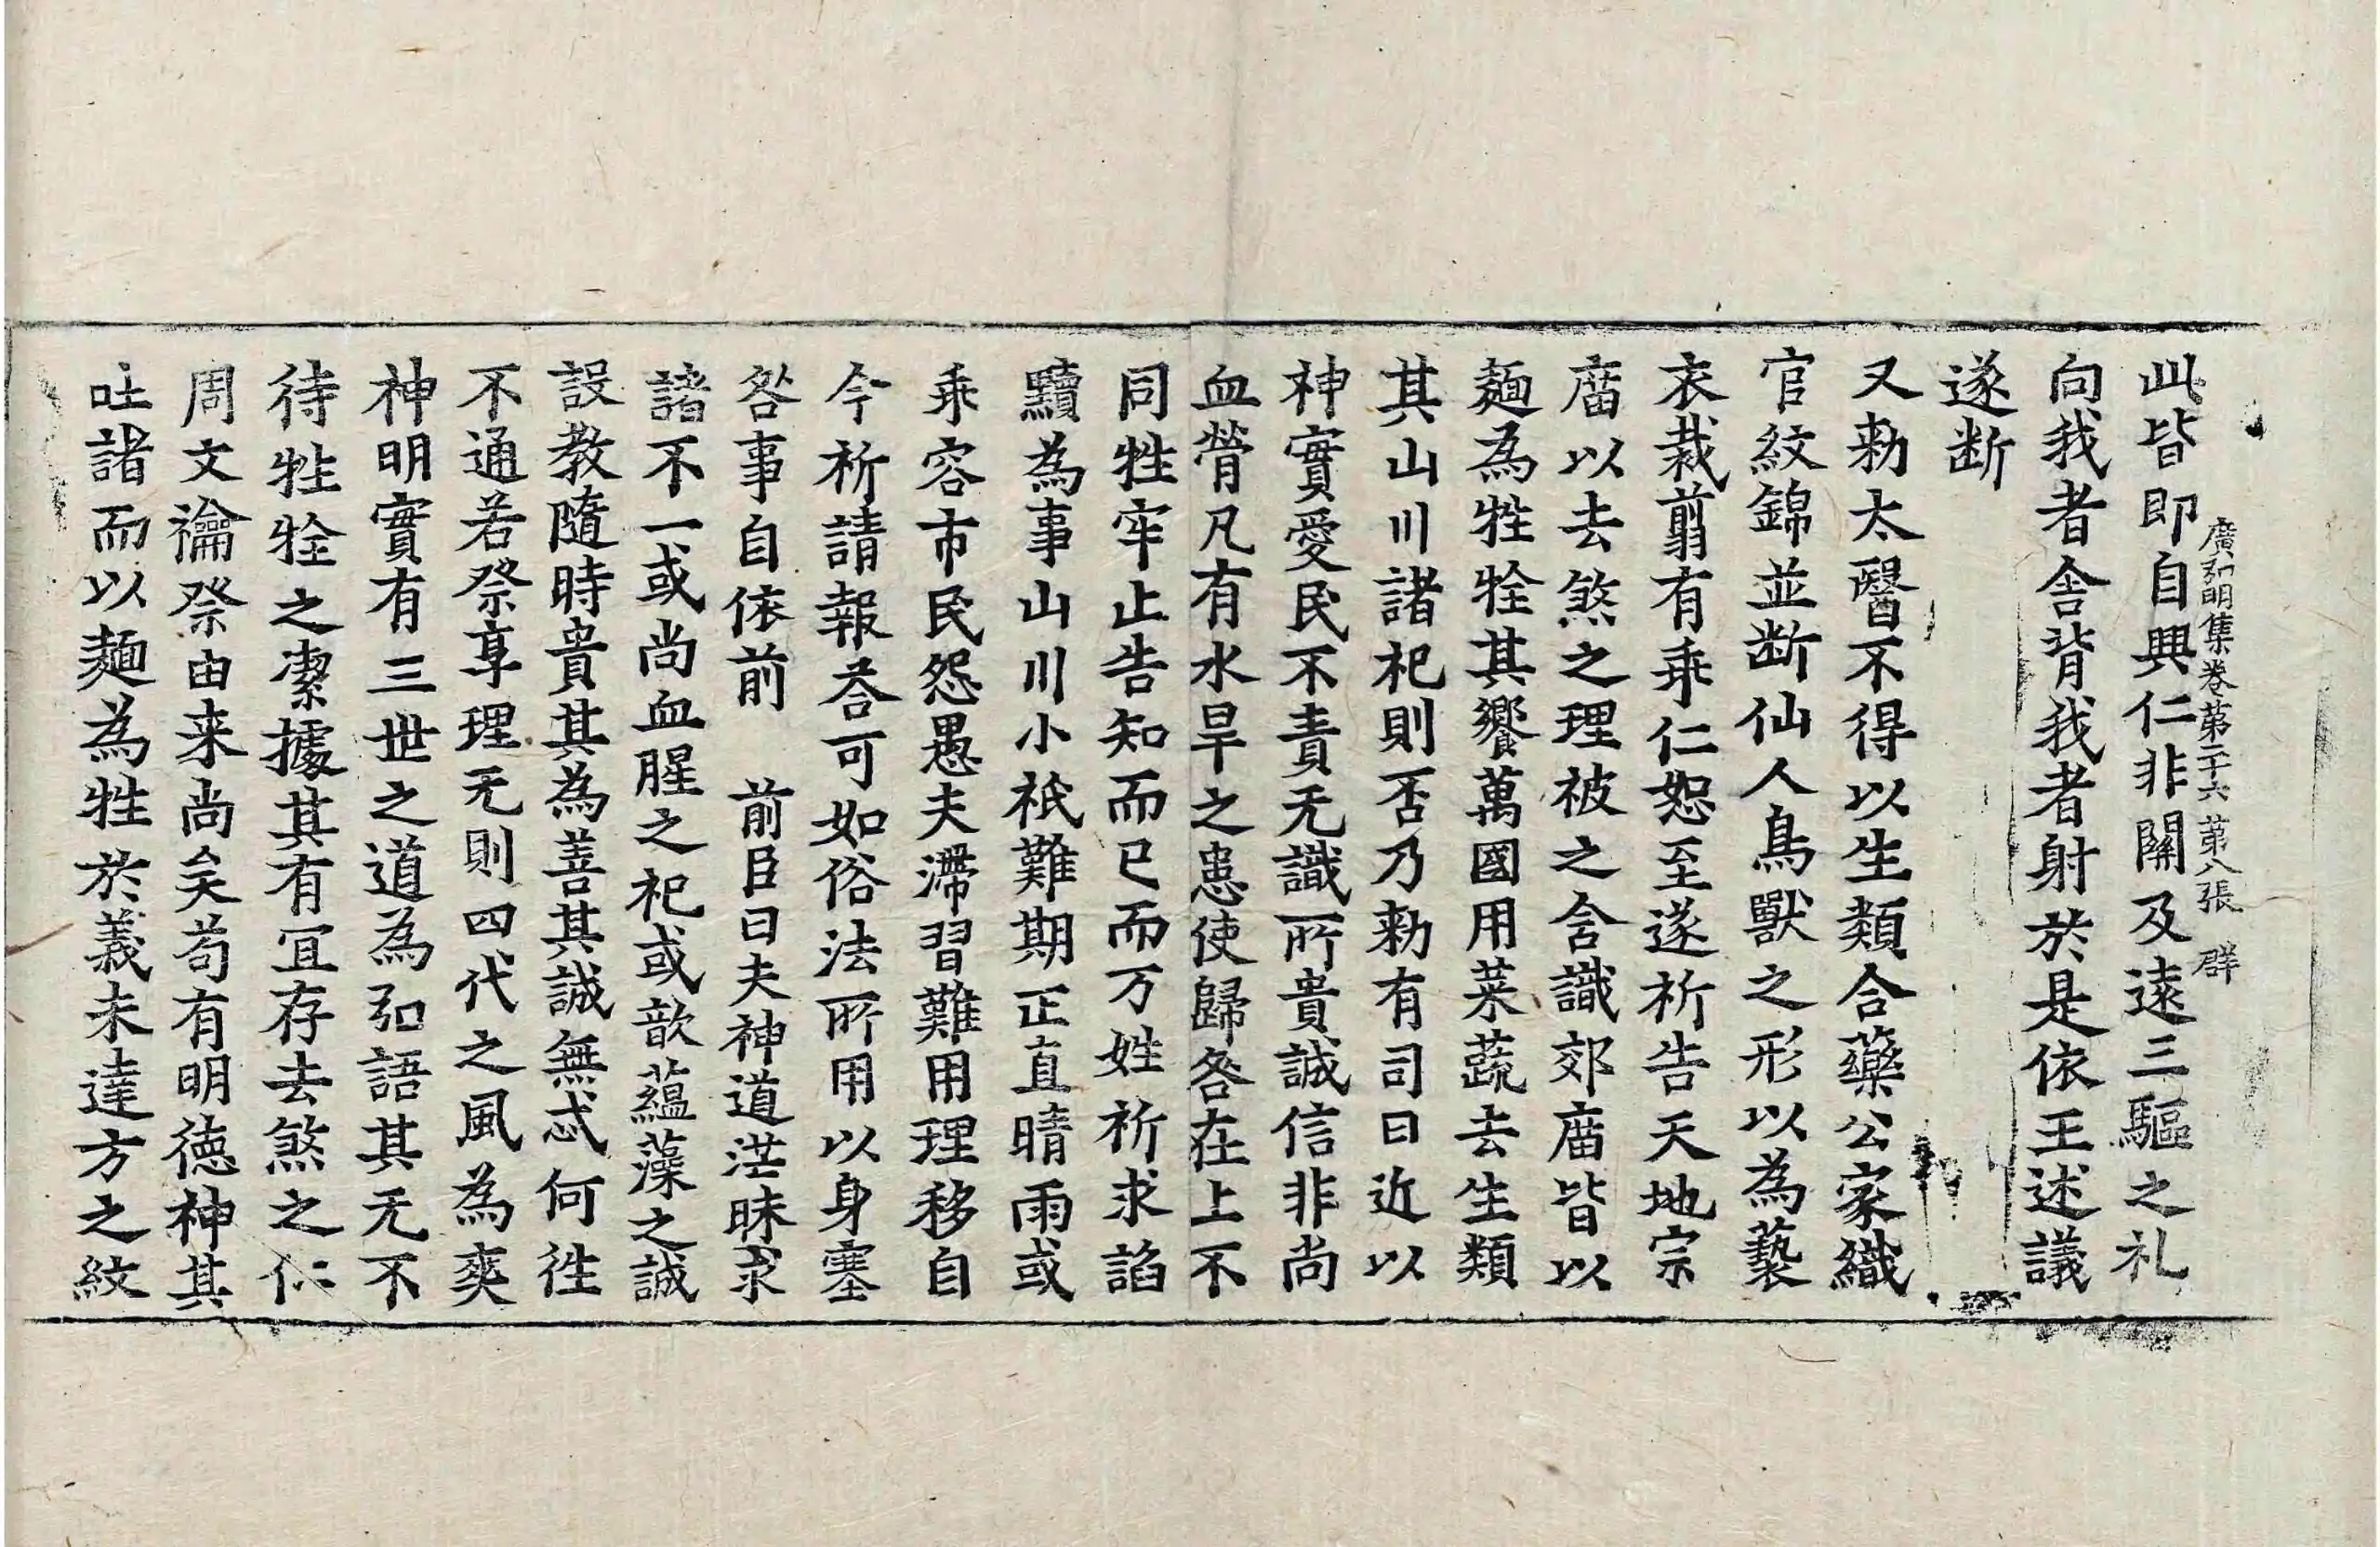 廣弘明集卷第二十六 第八張 群
此皆即自興仁非關及遠三驅之礼
向我者舍背我者射於是依王述議
遂断
又勑太醫不得以生類合藥公家織
官紋錦並断仙人鳥獸之形以為褻
衣裁翦有乖仁恕至遂祈告天地宗
庿以去煞之理被之含識郊庿皆以
麺為牲牷其饗萬國用菜蔬去生類
其山川諸祀則否乃勑有司曰近以
神實愛民不責无識所貴誠信非尚
血膋凡有水旱之患使歸咎在上不
同牲牢止告知而已而万姓祈求諂
黷為事山川小祇難期正直晴雨或
乖容市民怨愚夫滯習難用理移自
今祈請報荅可如俗法所用以身塞
咎事自依前 前臣曰夫神道茫昧求
諸不一或尚血腥之祀或歆蘊藻之誠
設教隨時貴其為善其誠無忒何徃
不通若祭享理无則四代之風為爽
神明實有三世之道為弘語其无不
待牲牷之潔據其有宜存去煞之仁
周文禴祭由来尚矣苟有明徳神其
吐諸而以麺為牲於義未達方之紋